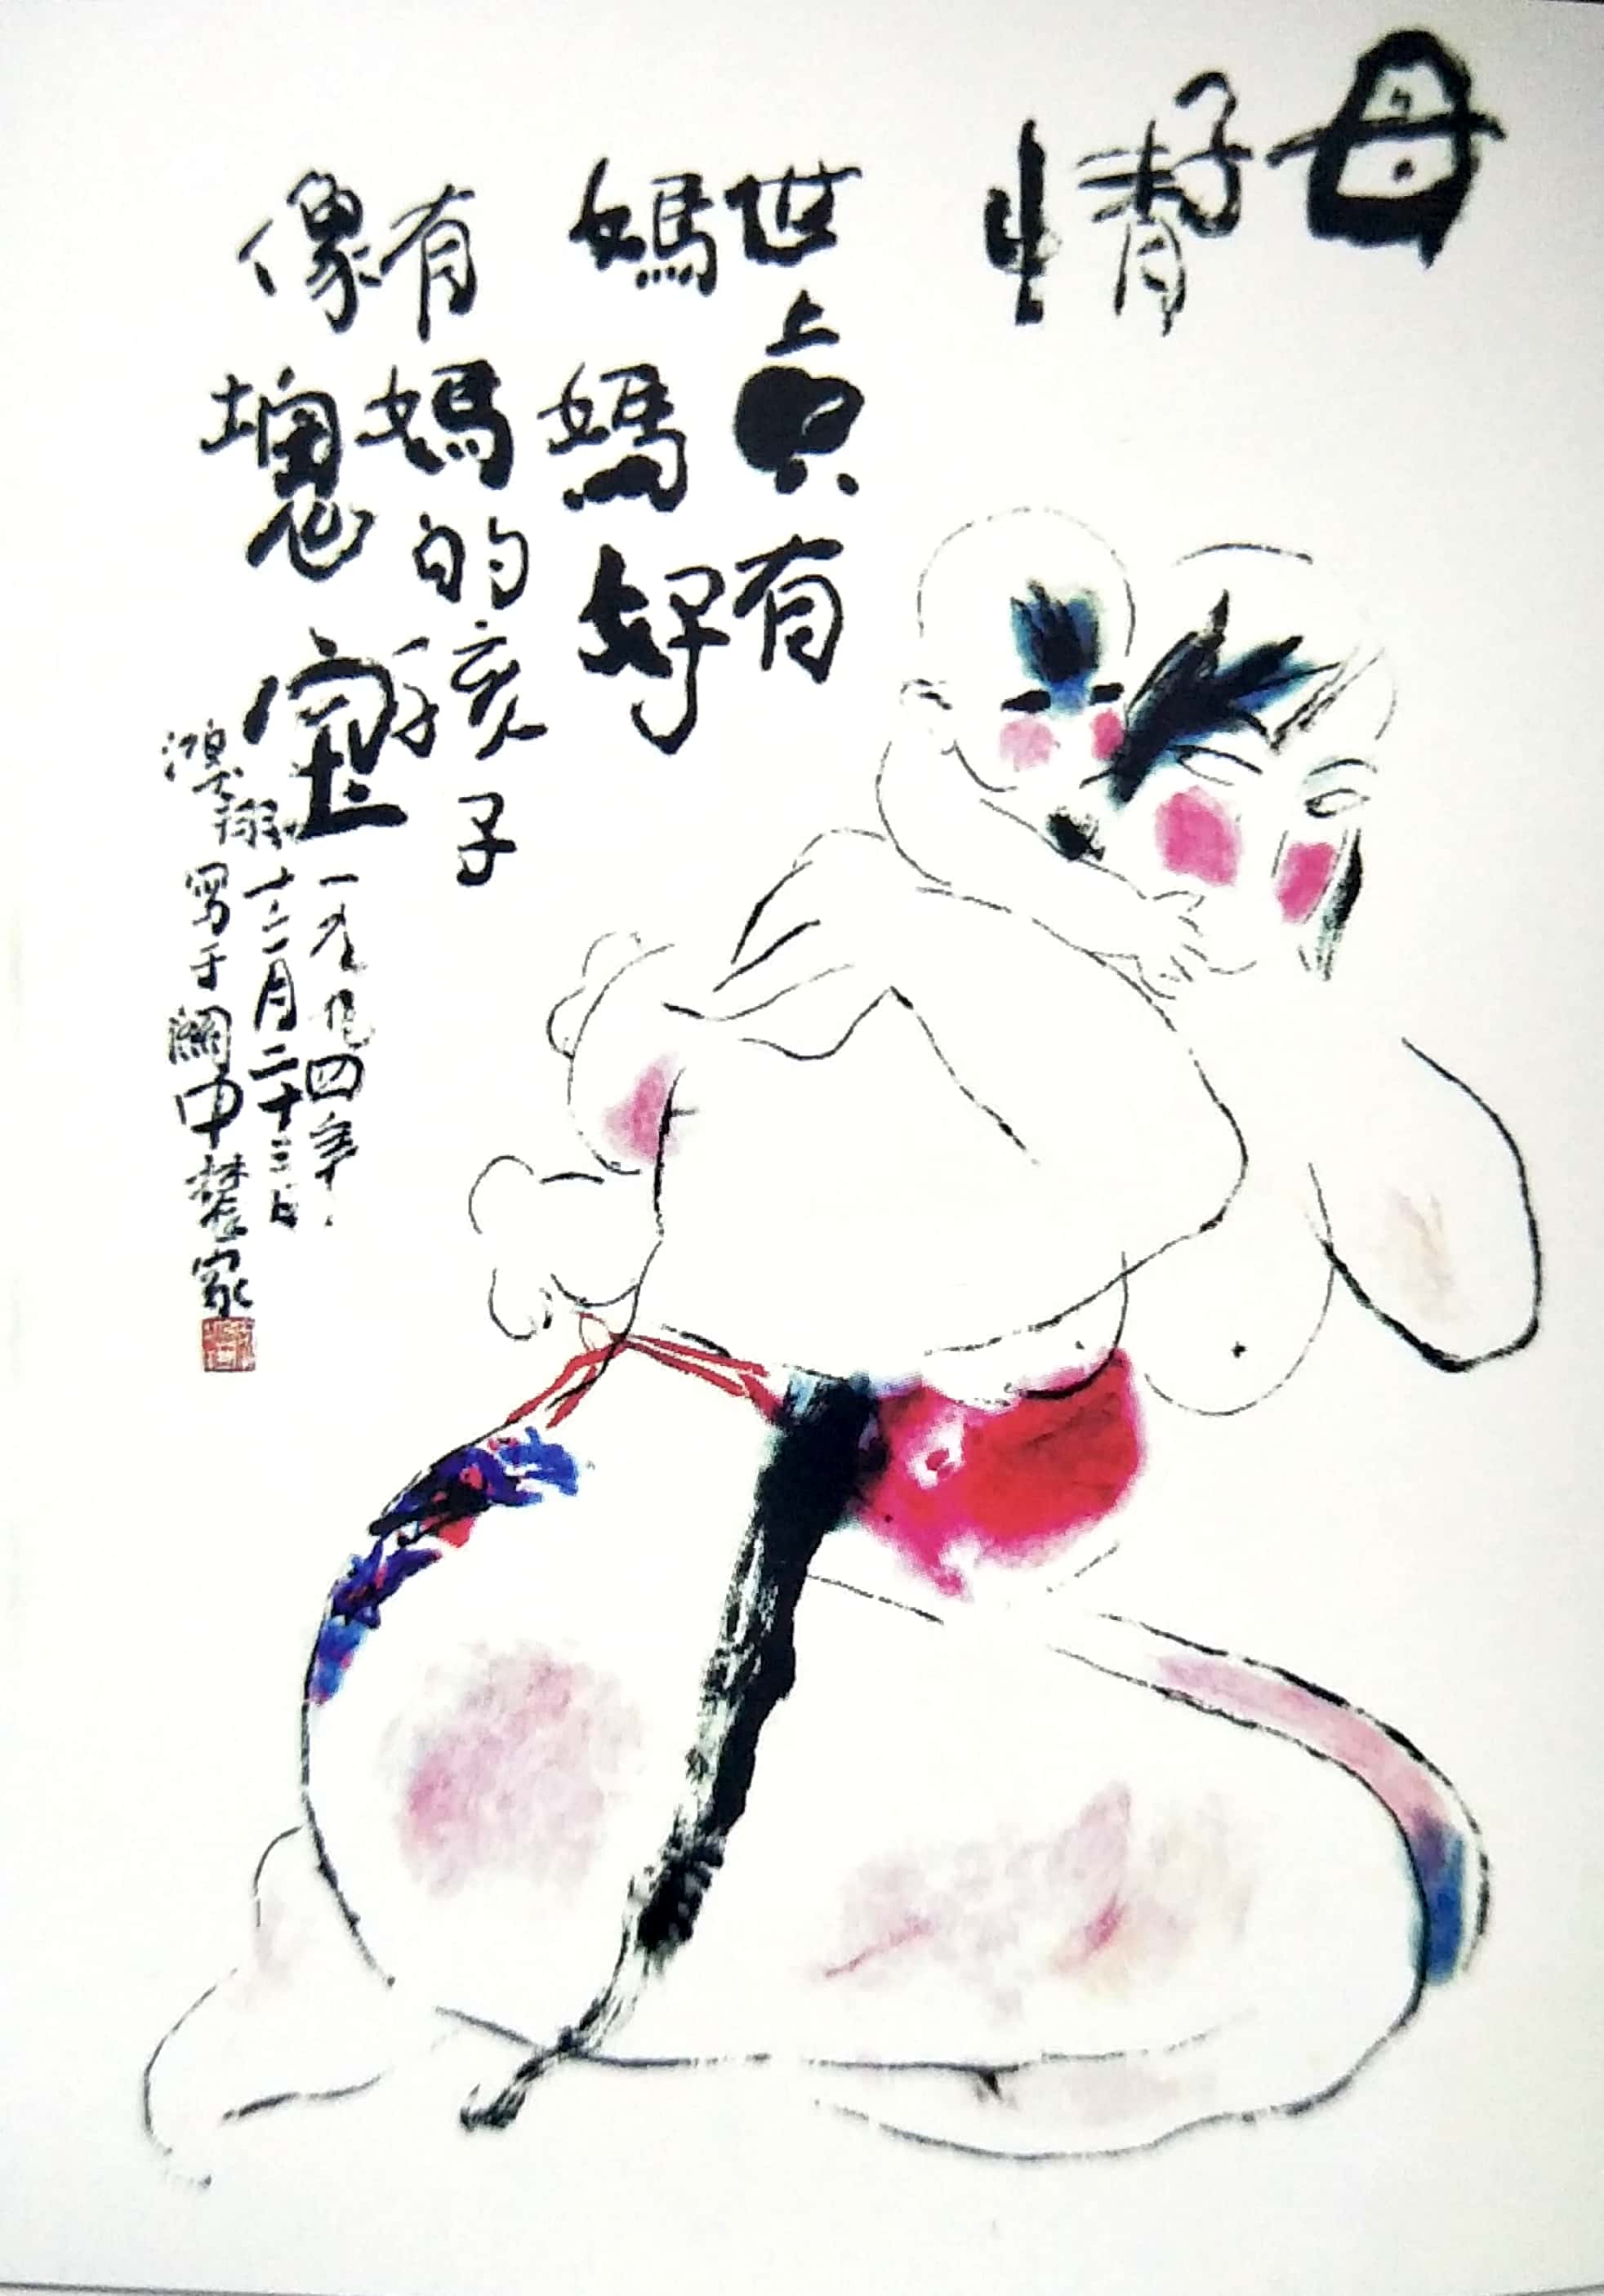 母子情
世上只有
媽媽好
有媽的孩子
像塊宝
一九九四年
十二月二十三日
鴻翔寫于關中樊家